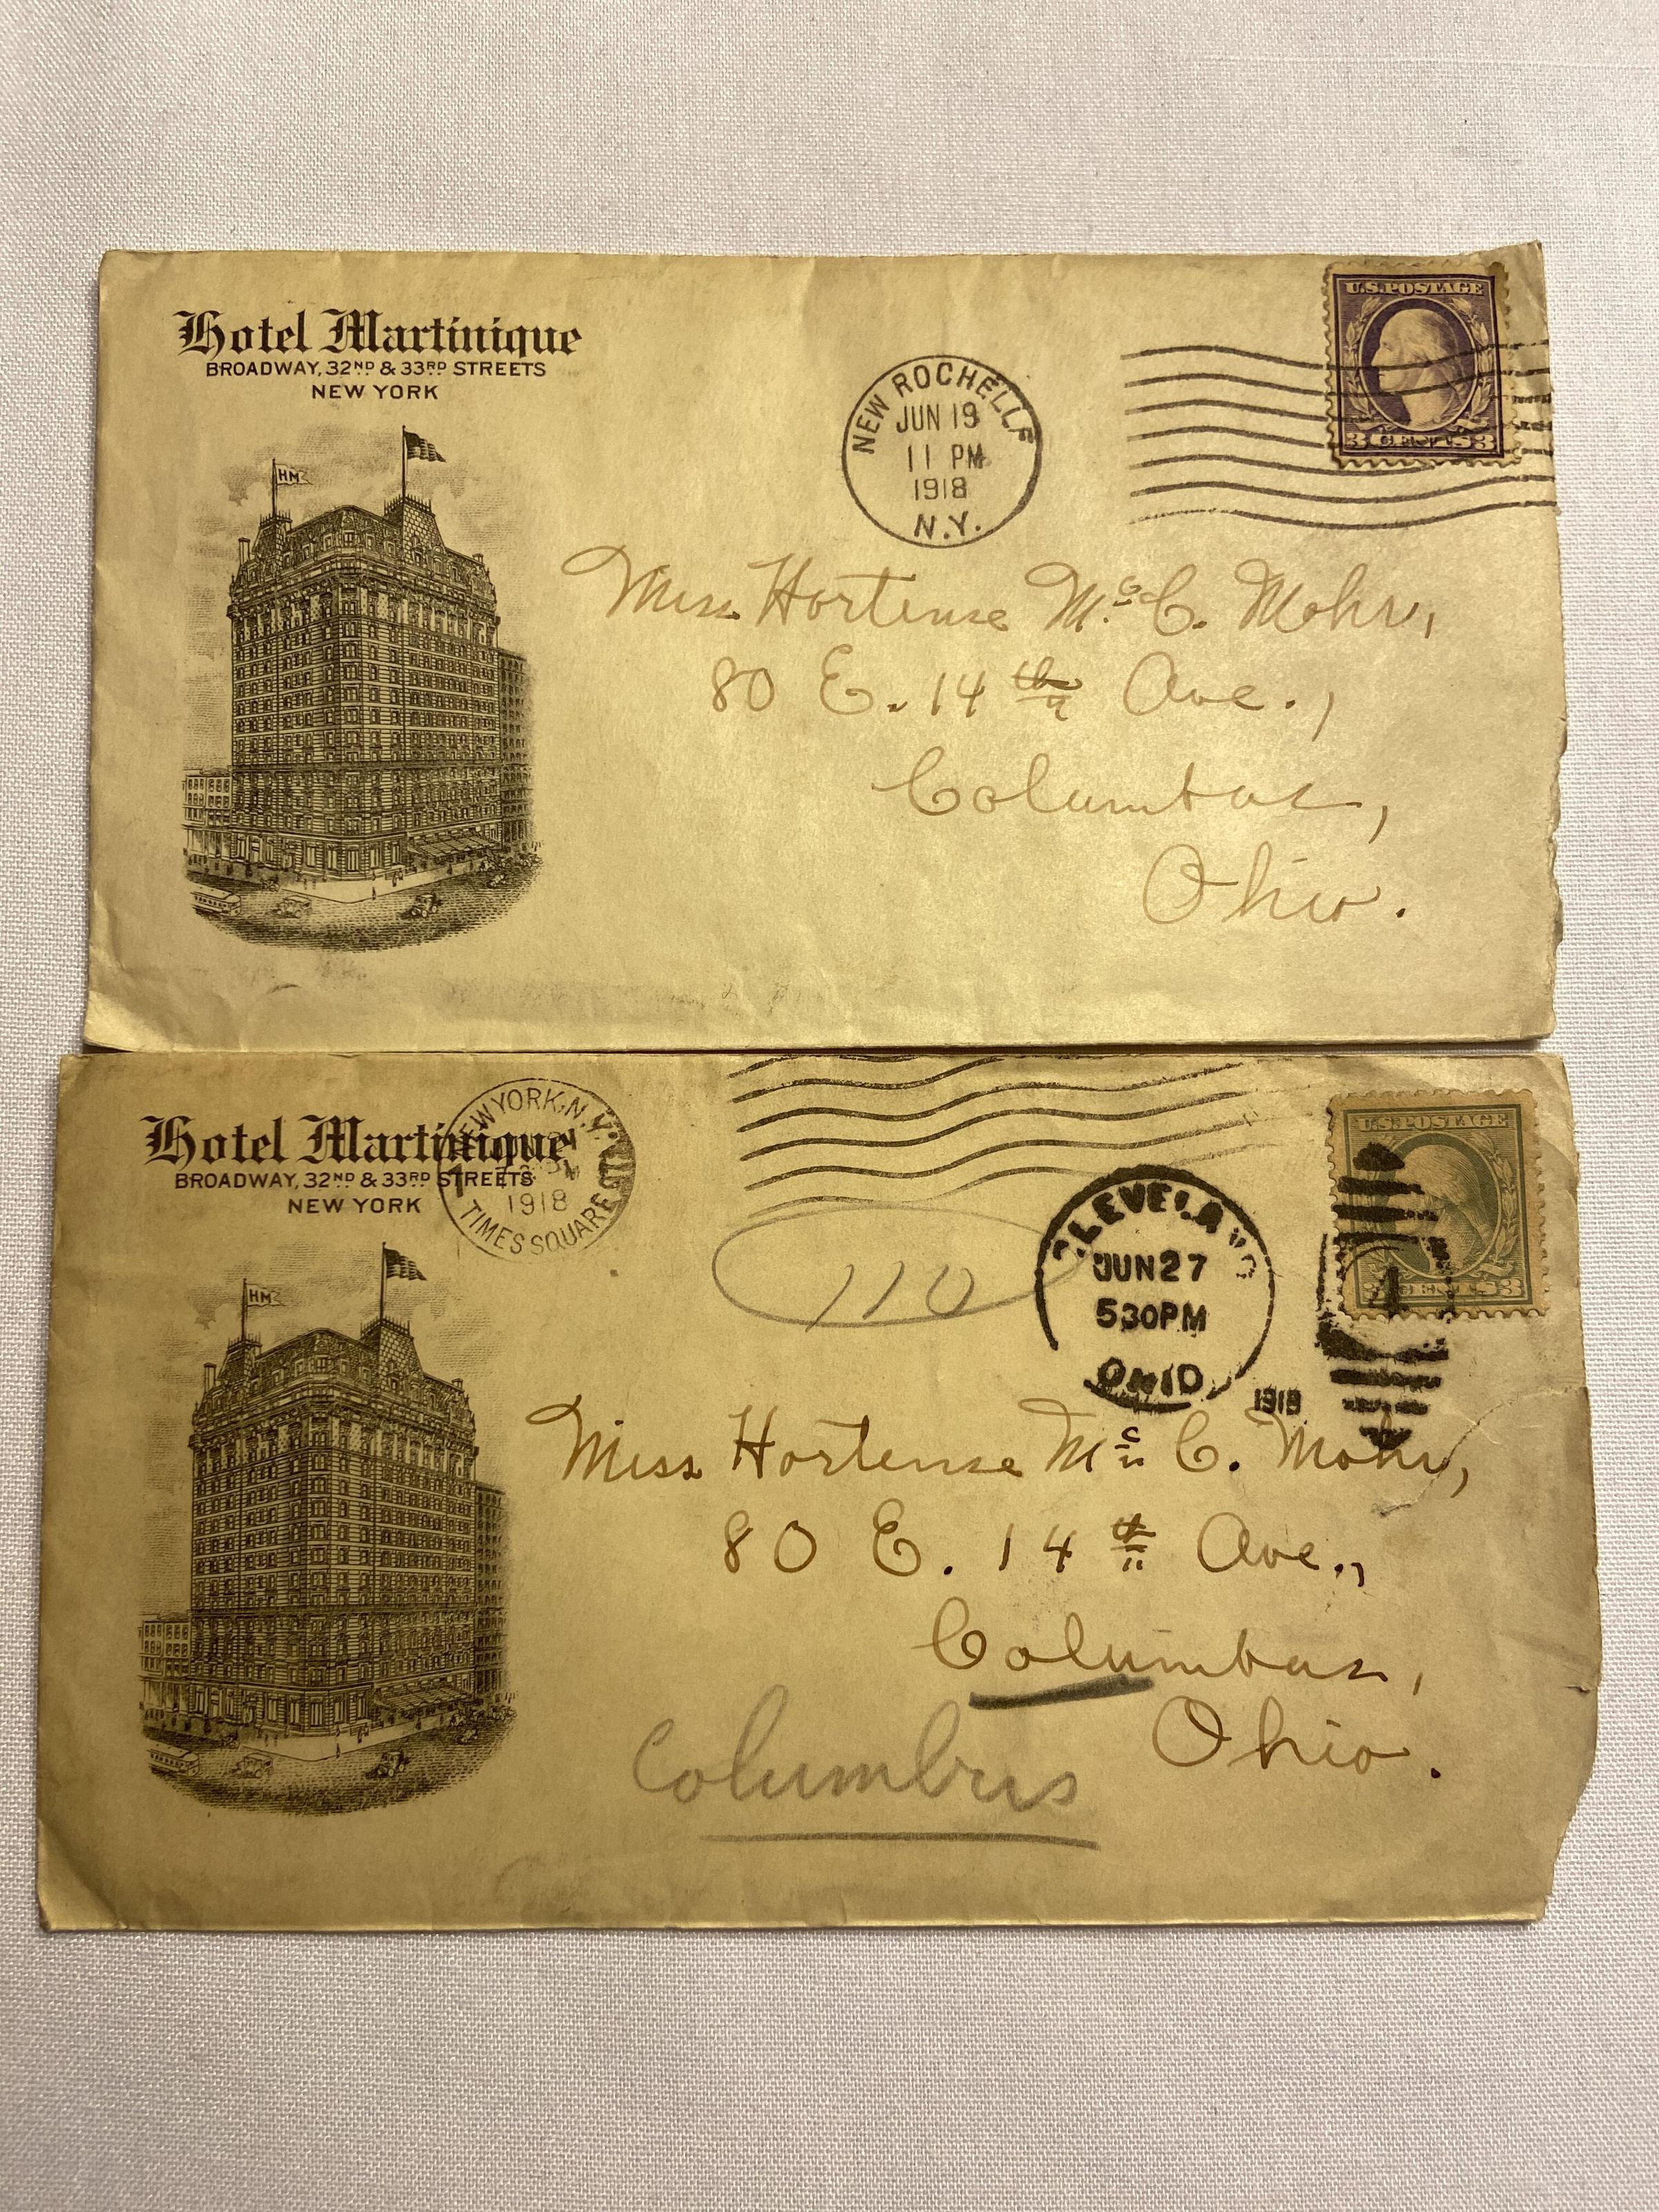 Hotel Martinique
BROADWAY, 32ND & 33RD STREETS
NEW YORK
HM
NEW ROCHELLE
JUN 19
11 PM
1918
N.Y.
U.S. POSTAGE
3 CENTS 3
Miss Hortense Mc C. Mohr,
80 E. 14th Ave.,
Columbus,
Ohio.
Hotel Martinique
BROADWAY, 32ND & 33RD STREETS
NEW YORK
HM
NEW YORK, N.Y.
1918
TIMES SQUARE
110
CLEVELAND
JUN 27
530PM
OHIO
1918
U.S. POSTAGE
3
4
Miss Hortense Mc C. Mohr,
80 E. 14th Ave.,
Columbus,
Ohio.
Columbus